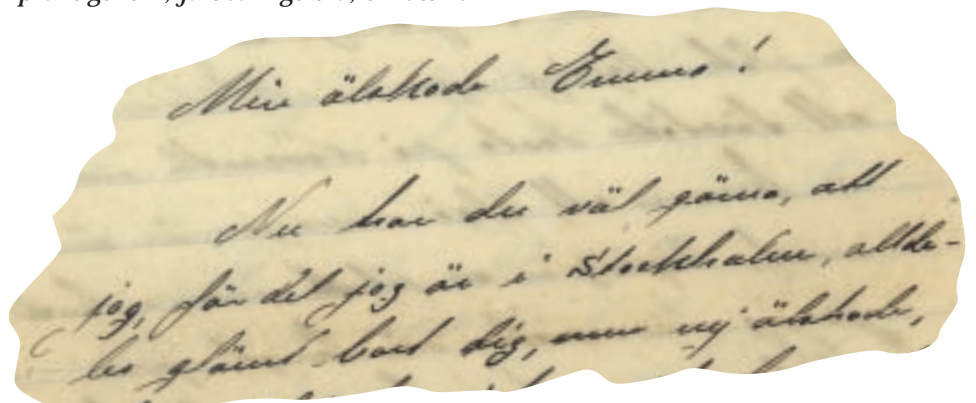 Min älskade Emma!
Nu tror du väl gärna, att
jag, för det jag är i Stockholm, allde-
les glömt bort dig, men nej älskade,